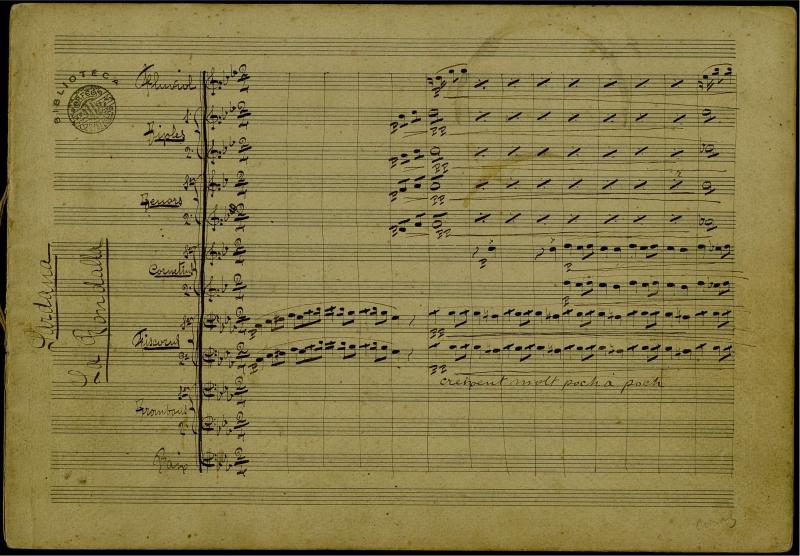 BIBLIOTECA
Sardana
La Rondalla
Fluviol
1
Tiples
2
1
Tenors
2
1
Cornetins
2
1
Fiscorns
2
1
Trombons
2
Baix
crexent molt poch à poch